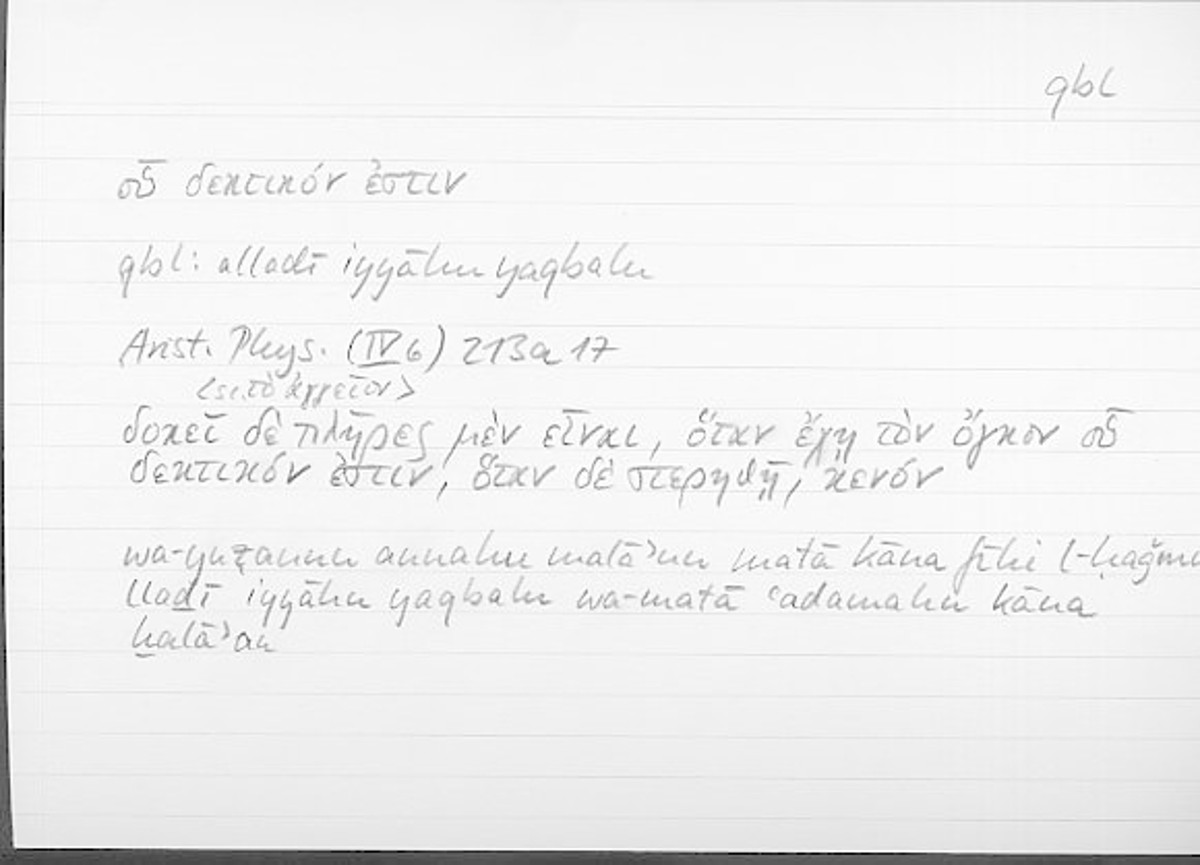 qbl
οὗ δεκτικόν ἐστιν
qbl: alladī iyyāhu yaqbalu
Arist. Phys. (IV 6) 213a 17
<sc. τὸ ἀγγεῖον>
δοκεῖ δὲ πλῆρες μὲν εἶναι, ὅταν ἔχῃ τὸν ὄγκον οὗ
δεκτικόν ἐστιν, ὅταν δὲ στερηθῇ, κενόν
wa-yuẓannu annahu malāʾun matā kāna fīhi l-ḥaǧmu
lladī iyyāhu yaqbalu wa-matā ʿadamahu kāna
ḫalāʾan